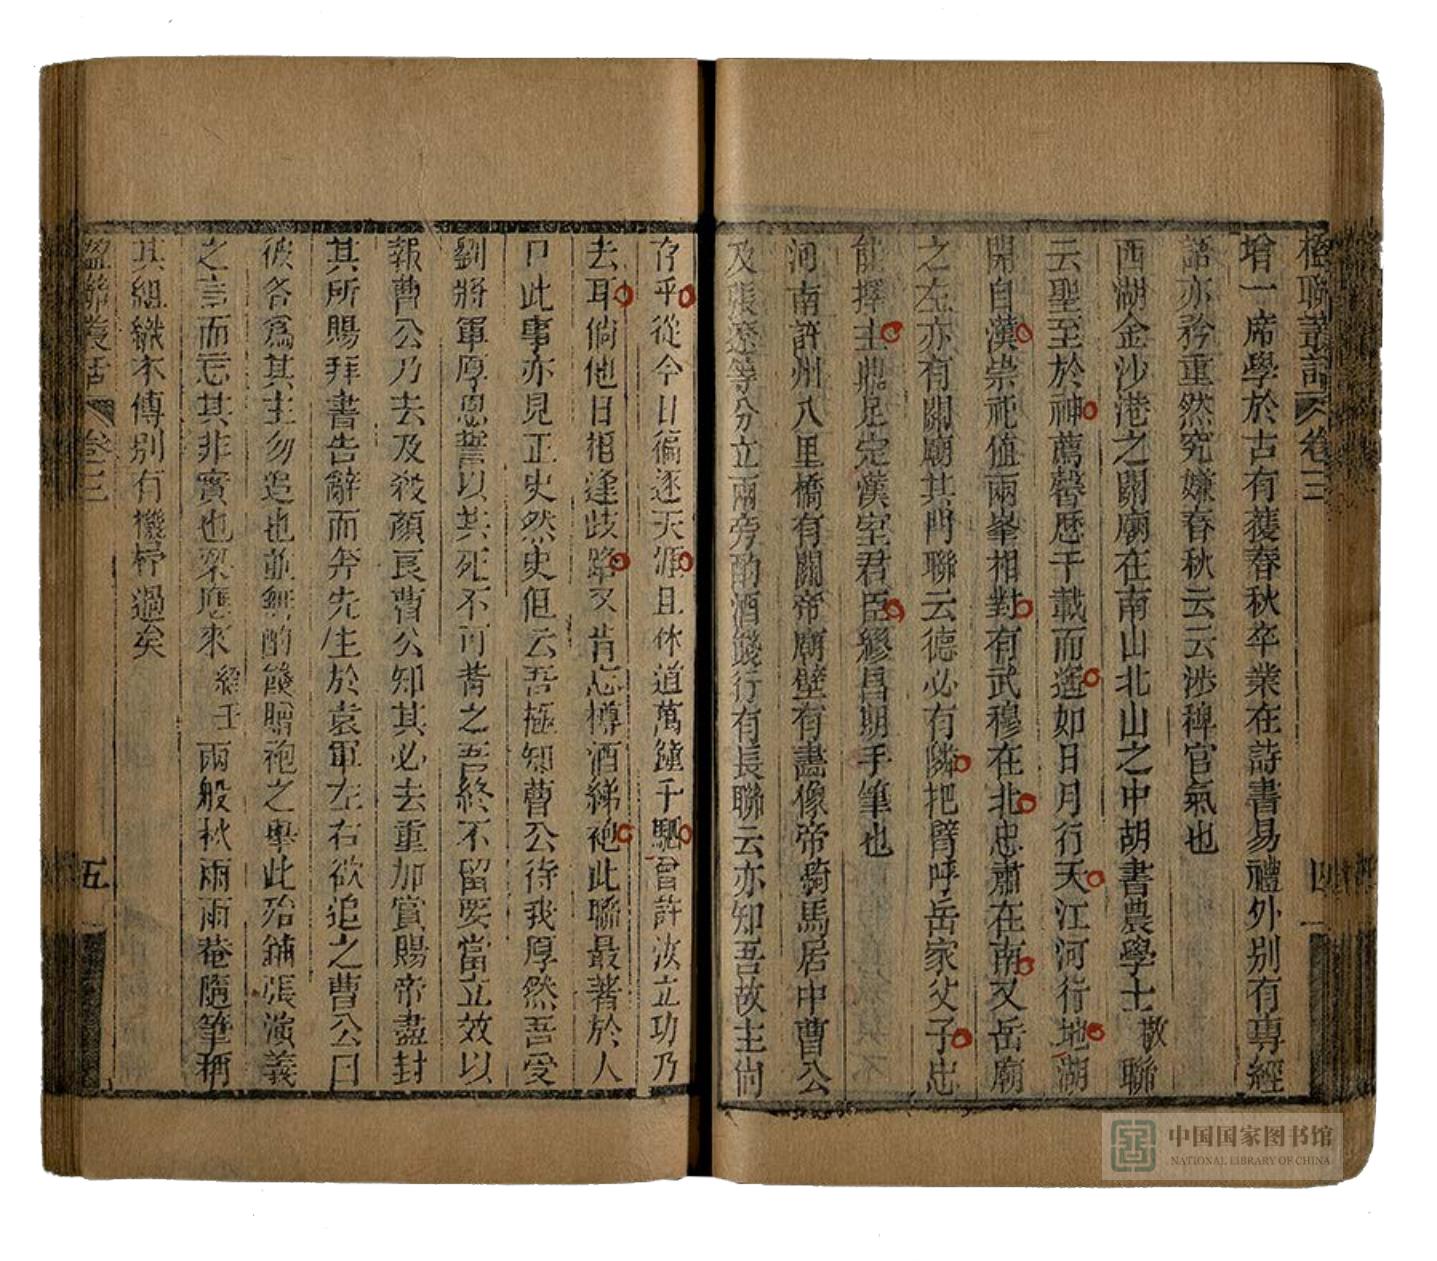 楹聯叢話 卷三 四
增一席學於古有獲春秋卒業在詩書易禮外別有專經
語亦矜重然究嫌春秋云云涉稗官氣也
西湖金沙港之關廟在南山北山之中胡書農學士敬聯
云聖至於神薦馨歷千載而遙如日月行天江河行地湖
開自漢崇祀值兩峯相對有武穆在北忠肅在南又岳廟
之左亦有關廟其門聯云德必有隣把臂呼岳家父子忠
能擇主鼎足定漢室君臣繆昌期手筆也
河南許州八里橋有關帝廟壁有畵像帝騎馬居中曹公
及張遼等分立兩旁酌酒餞行有長聯云亦知吾故主尙
存乎從今日徧逐天涯且休道萬鐘千駟曾許汝立功乃
去耳倘他日相逢歧路又肯忘樽酒綈袍此聯最著於人
口此事亦見正史然史但云吾極知曹公待我厚然吾受
劉將軍厚恩誓以共死不可背之吾終不留要當立效以
報曹公乃去及殺顏良曹公知其必去重加賞賜帝盡封
其所賜拜書告辭而奔先生於袁軍左右欲追之曹公曰
彼各爲其主勿追也並無酌餞贈袍之舉此殆鋪張演義
之言而忘其非實也梁應來紹壬兩般秋雨雨菴隨筆稱
其組織不傳別有機杼過矣
楹聯叢話 卷三 五
中国国家图书馆
NATIONAL LIBRARY OF CHINA